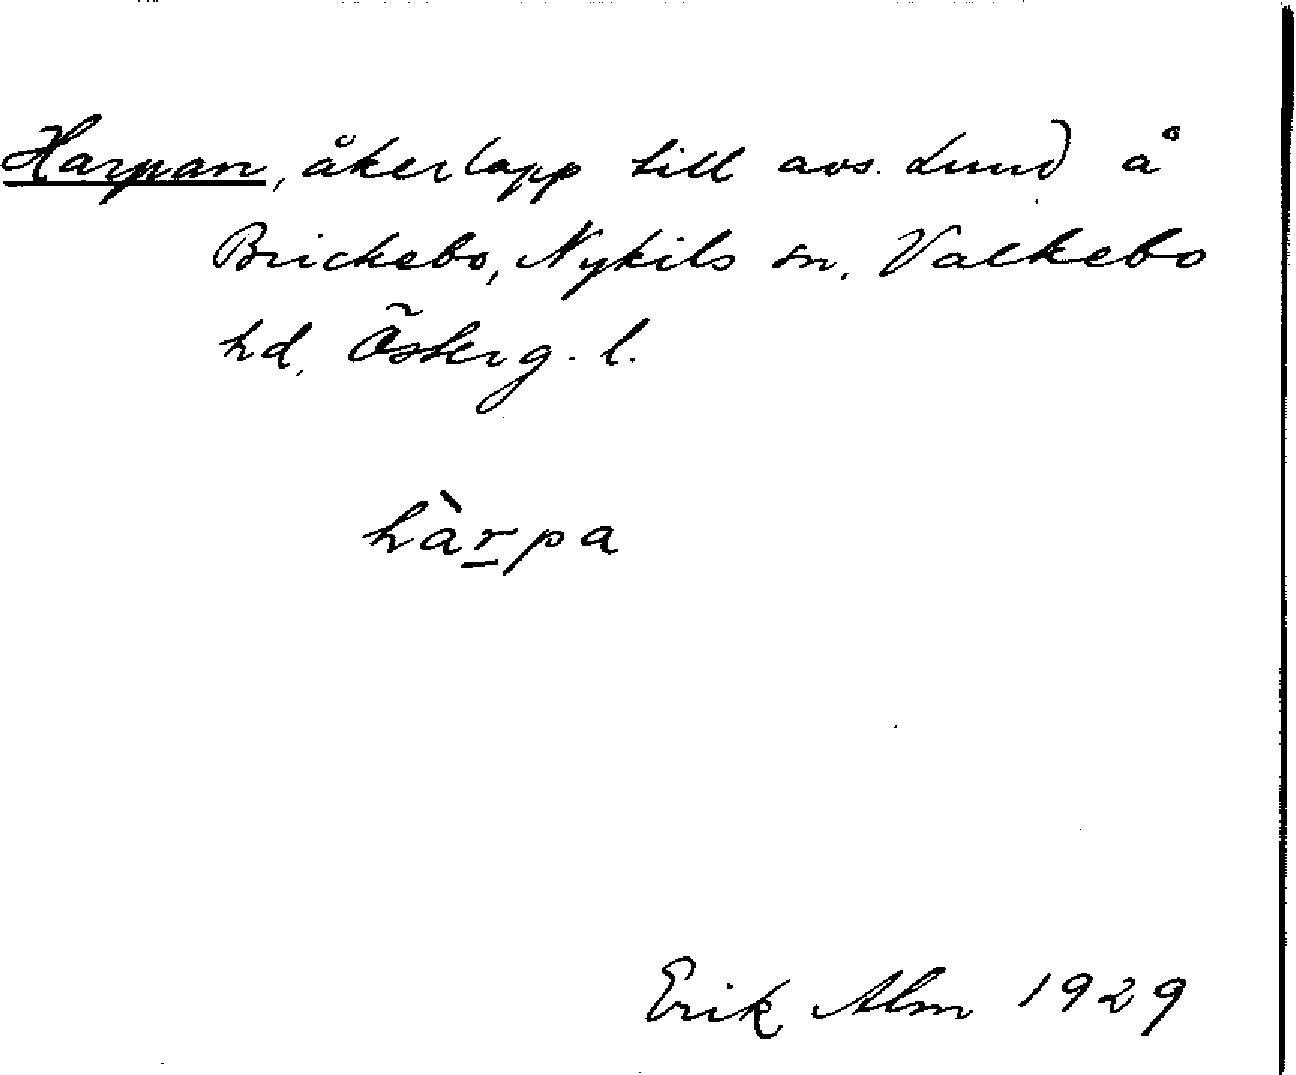 Harpan, åkerlapp till avs. Lund å
Brickebo, Nykils sn. Valkebo
hd. Österg. l.
hàrpa
Erik Alm 1929